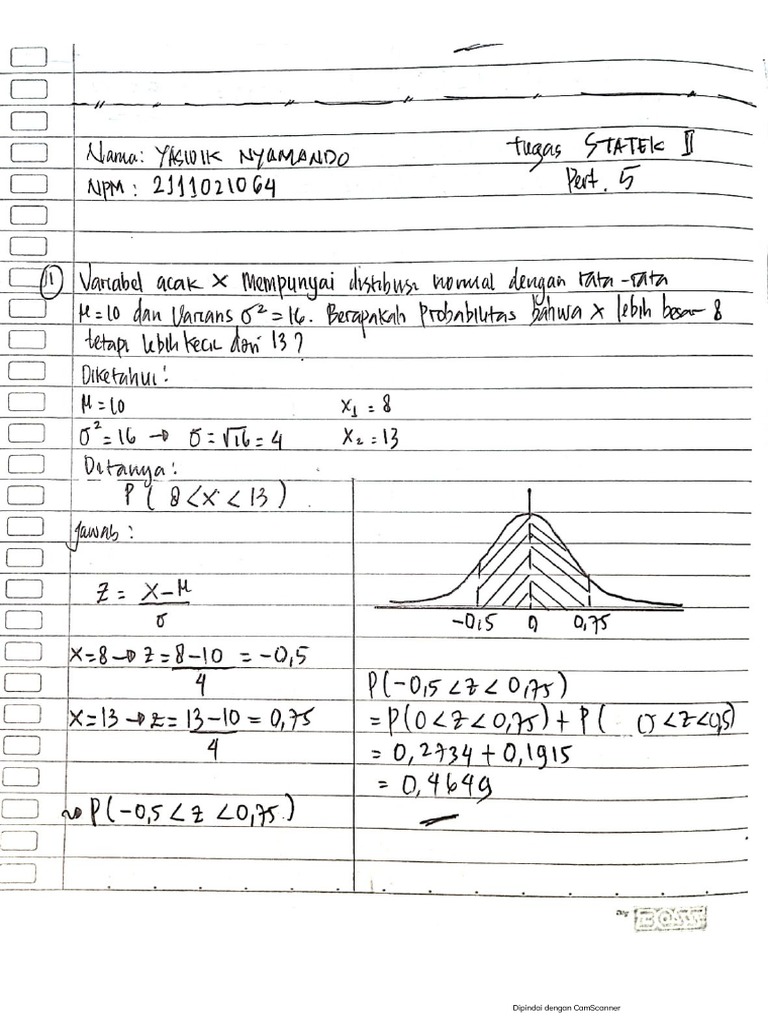 Nama: YASIDIK NYAMANDO
NPM: 2111021064
tugas STATEK II
Pert. 5
11 Variabel acak X Mempunyai distribusi normal dengan rata-rata
μ=10 dan Varians σ²=16. Berapakah Probabilitas bahwa X lebih besar 8
tetapi lebih kecil dari 13?
Diketahui:
μ=10
X₁=8
σ²=16 → σ=√16=4
X₂=13
Ditanya:
P(8<X<13)
Jawab:
Z = X-μ
σ
X=8→Z=8-10 = -0,5
4
X=13→Z=13-10=0,75
4
~> P(-0,5<Z<0,75)
-0,5 0 0,75
P(-0,5<Z<0,75)
=P(0<Z<0,75)+P( 0<Z<0,5)
=0,2734+0,1915
=0,4649
Dipindai dengan CamScanner